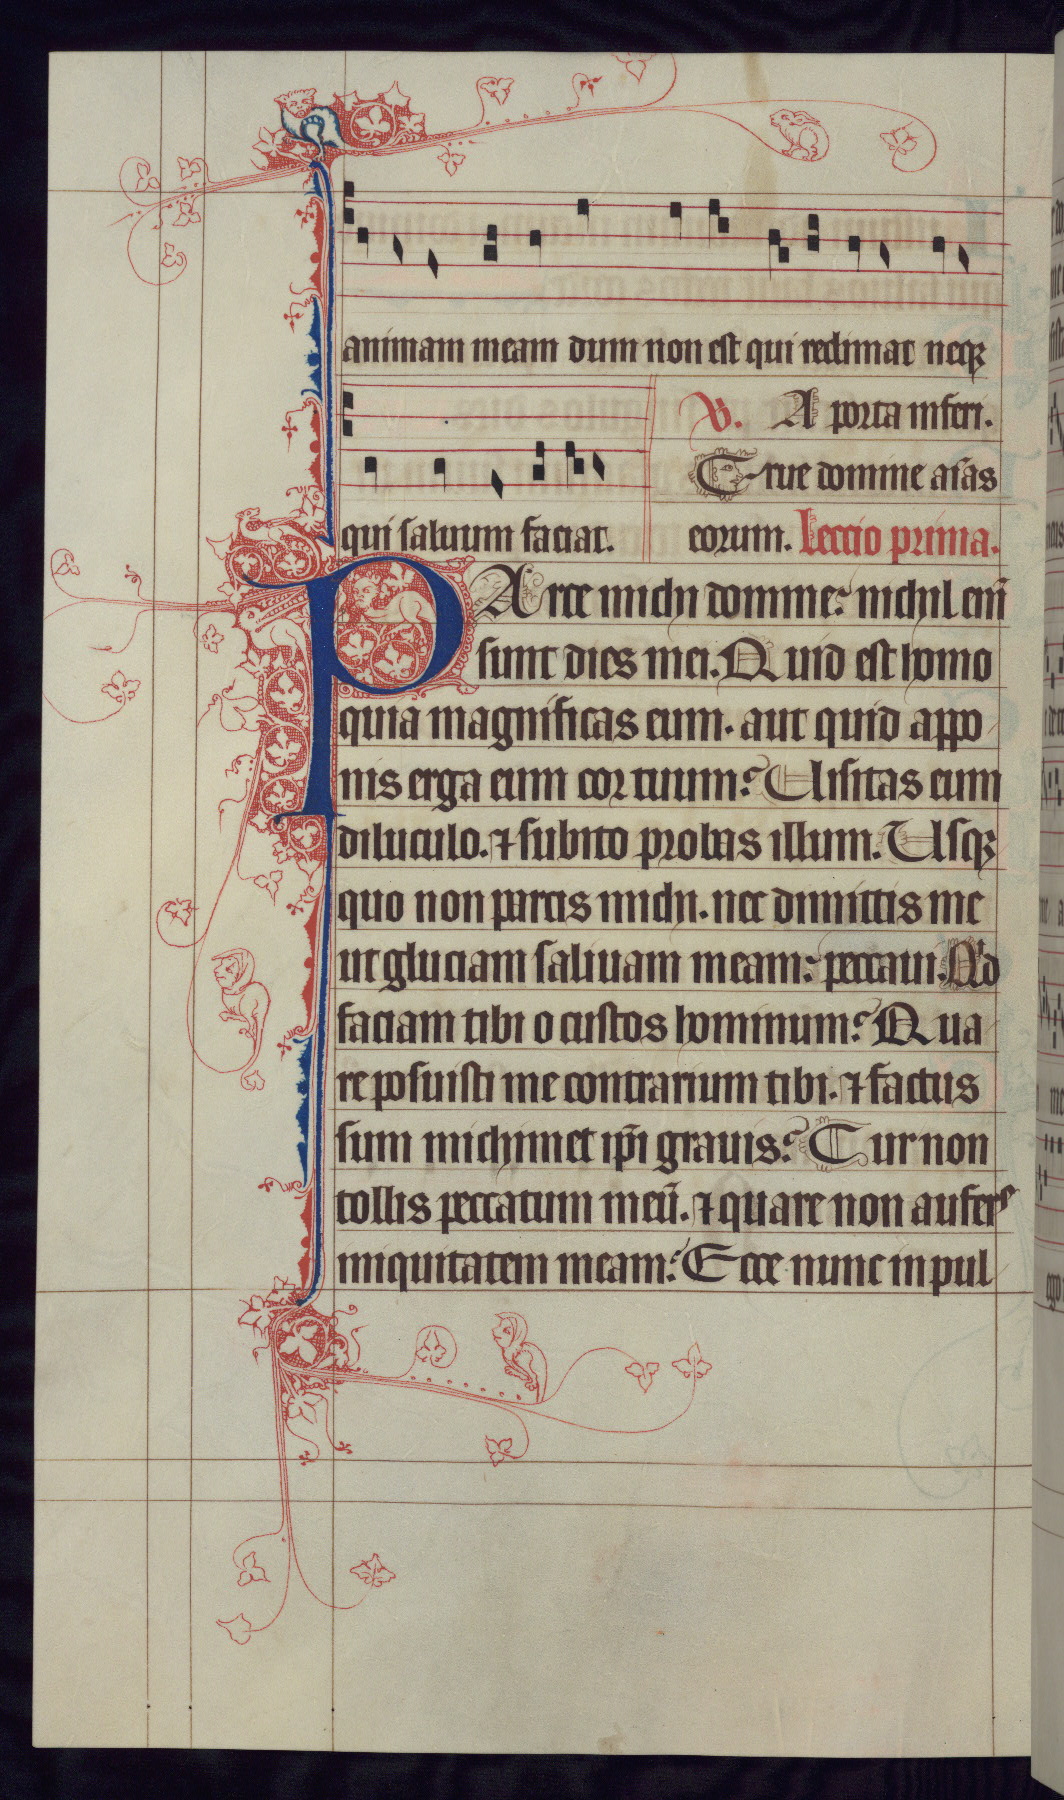 animam meam dum non est qui redimat neqꝫ
qui saluum faciat.
V. A porta inferi.
Erue domine aı̅as
eorum. Leccio prima.
PArce michi domine: nichil eni̅
sunt dies mei. Quid est homo
quia magnificas eum. aut quid appo
nis erga eum cor tuum? Uisitas eum
diluculo. ⁊ subito probas illum. Usqꝫ
quo non parcis michi. nec dimittis me
ut gluciam saliuam meam: peccaui. Qͥd
faciam tibi o custos hominum? Qua
re posuisti me contrarium tibi. ⁊ factus
sum michimet ip̅i grauis? Cur non
tollis peccatum meu̅. ⁊ quare non aufers
iniquitatem meam? Ecce nunc in pul